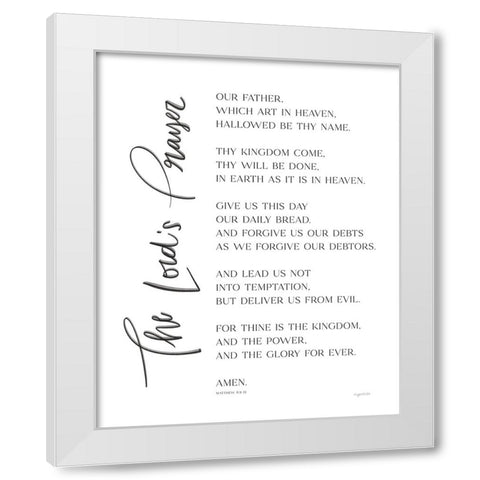 The Lord's Prayer
OUR FATHER,
WHICH ART IN HEAVEN,
HALLOWED BE THY NAME.
THY KINGDOM COME,
THY WILL BE DONE,
IN EARTH AS IT IS IN HEAVEN.
GIVE US THIS DAY
OUR DAILY BREAD.
AND FORGIVE US OUR DEBTS
AS WE FORGIVE OUR DEBTORS.
AND LEAD US NOT
INTO TEMPTATION,
BUT DELIVER US FROM EVIL.
FOR THINE IS THE KINGDOM,
AND THE POWER,
AND THE GLORY FOR EVER.
AMEN.
MATTHEW